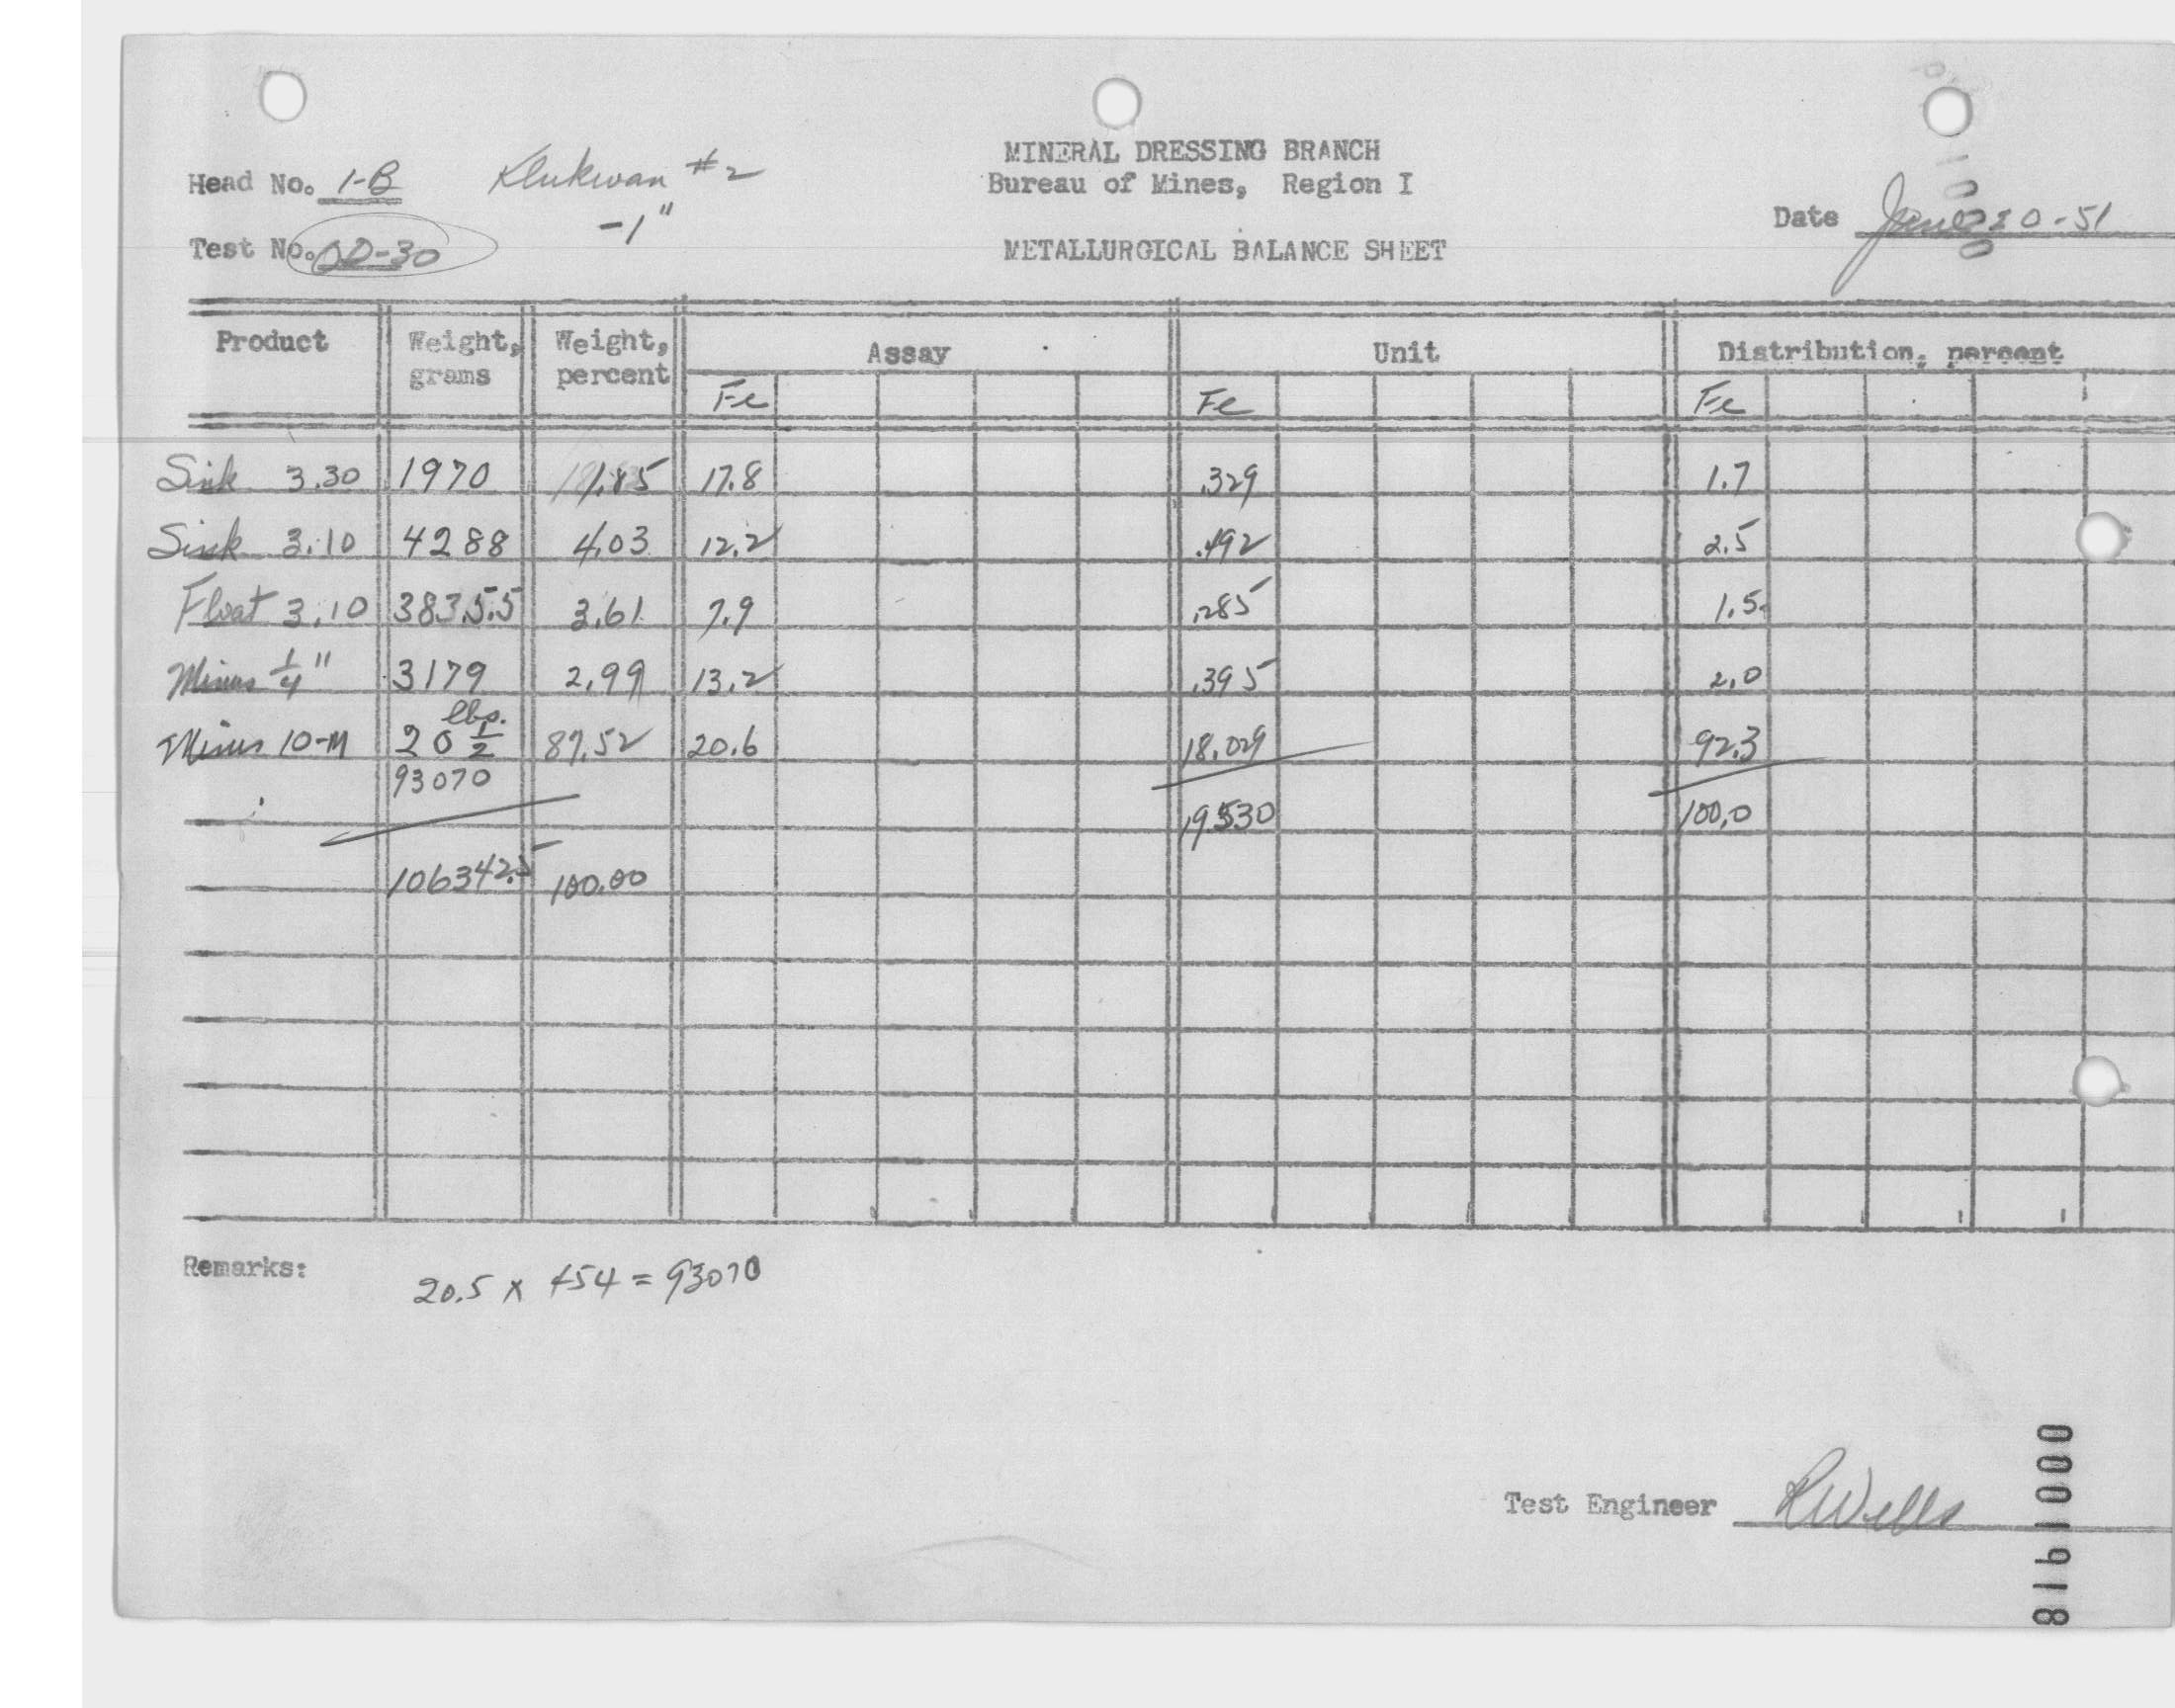 MINERAL DRESSING BRANCH
Head No. 1-B Klukwan #2 Bureau of Mines, Region I
-1"
Date 20-51
Test No. DD-30 METALLURGICAL BALANCE SHEET
Product Weight, grams Weight, percent Assay Unit Distribution, percent
Fe Fe Fe
Sink 3.30 1970 1.85 17.8 .329 1.7
Sink 3.10 4288 4.03 12.2 .492 2.5
Float 3.10 3835.5 3.61 7.9 .285 1.5
Minus 1/4" 3179 2.99 13.2 .395 2.0
Minus 10-M 20 1/2 lbs. 87.52 20.6 18.029 92.3
93070
19.530 100.0
106342.5 100.00
Remarks: 20.5 x 454 = 93070
Test Engineer RWells
0001918